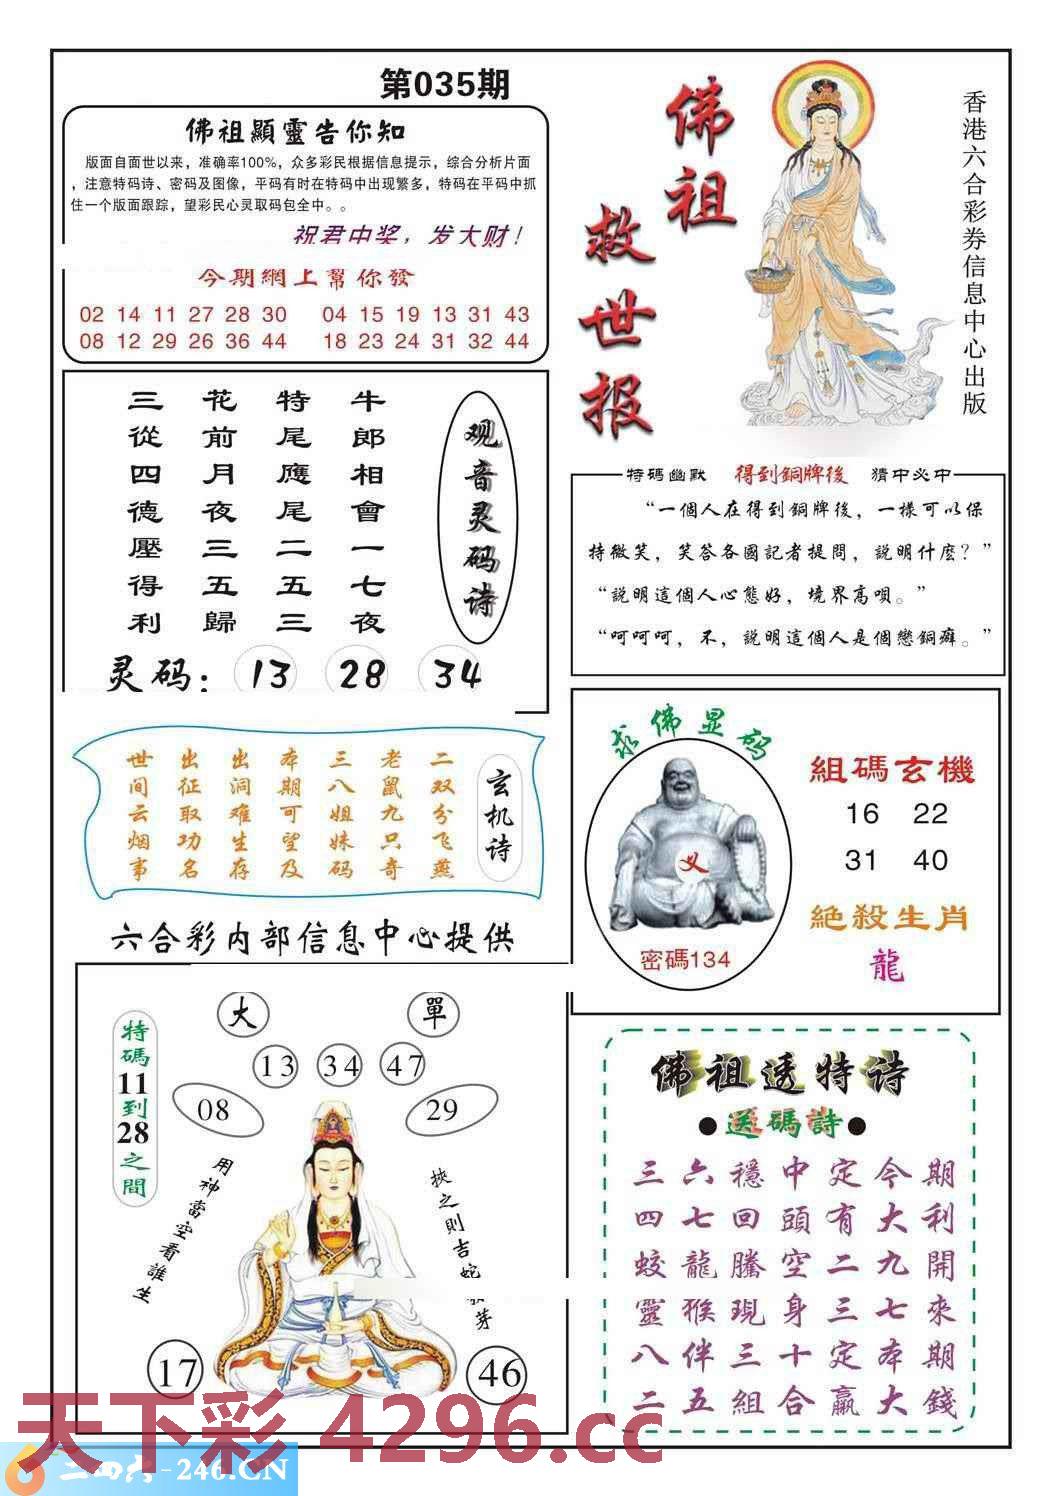 第035期
佛祖顯靈告你知
版面自面世以来，准确率100%，众多彩民根据信息提示，综合分析片面
，注意特码诗、密码及图像，平码有时在特码中出现繁多，特码在平码中抓
住一个版面跟踪，望彩民心灵取码包全中。。
祝君中奖，发大财！
今期網上幫你發
02 14 11 27 28 30 04 15 19 13 31 43
08 12 29 26 36 44 18 23 24 31 32 44
佛祖
救世报
香港六合彩券信息中心出版
观音灵码诗
牛郎相會一七夜
特尾應尾二五三
花前月夜三五歸
三從四德壓得利
灵码： 13 28 34
特碼幽默 得到銅牌後 猜中必中
“一個人在得到銅牌後，一樣可以保
持微笑，笑答各國記者提問，説明什麽？”
“説明這個人心態好，境界高唄。”
“呵呵呵，不，説明這個人是個戀銅癖。”
玄机诗
二双分飞燕
老鼠九只奇
三八姐妹码
本期可望及
出洞难生存
出征取功名
世间云烟事
求佛显码
义
密碼134
組碼玄機
16 22
31 40
絕殺生肖
龍
六合彩内部信息中心提供
大 單
13 34 47
08 29
特碼11到28之間
用神當空看誰生
挾之則吉蛇
芽
17 46
佛祖透特诗
●送碼詩●
三六穩中定今期
四七回頭有大利
蛟龍騰空二九開
靈猴現身三七來
八伴三十定本期
二五組合贏大錢
天下彩 4296.cc
二四六-246.CN